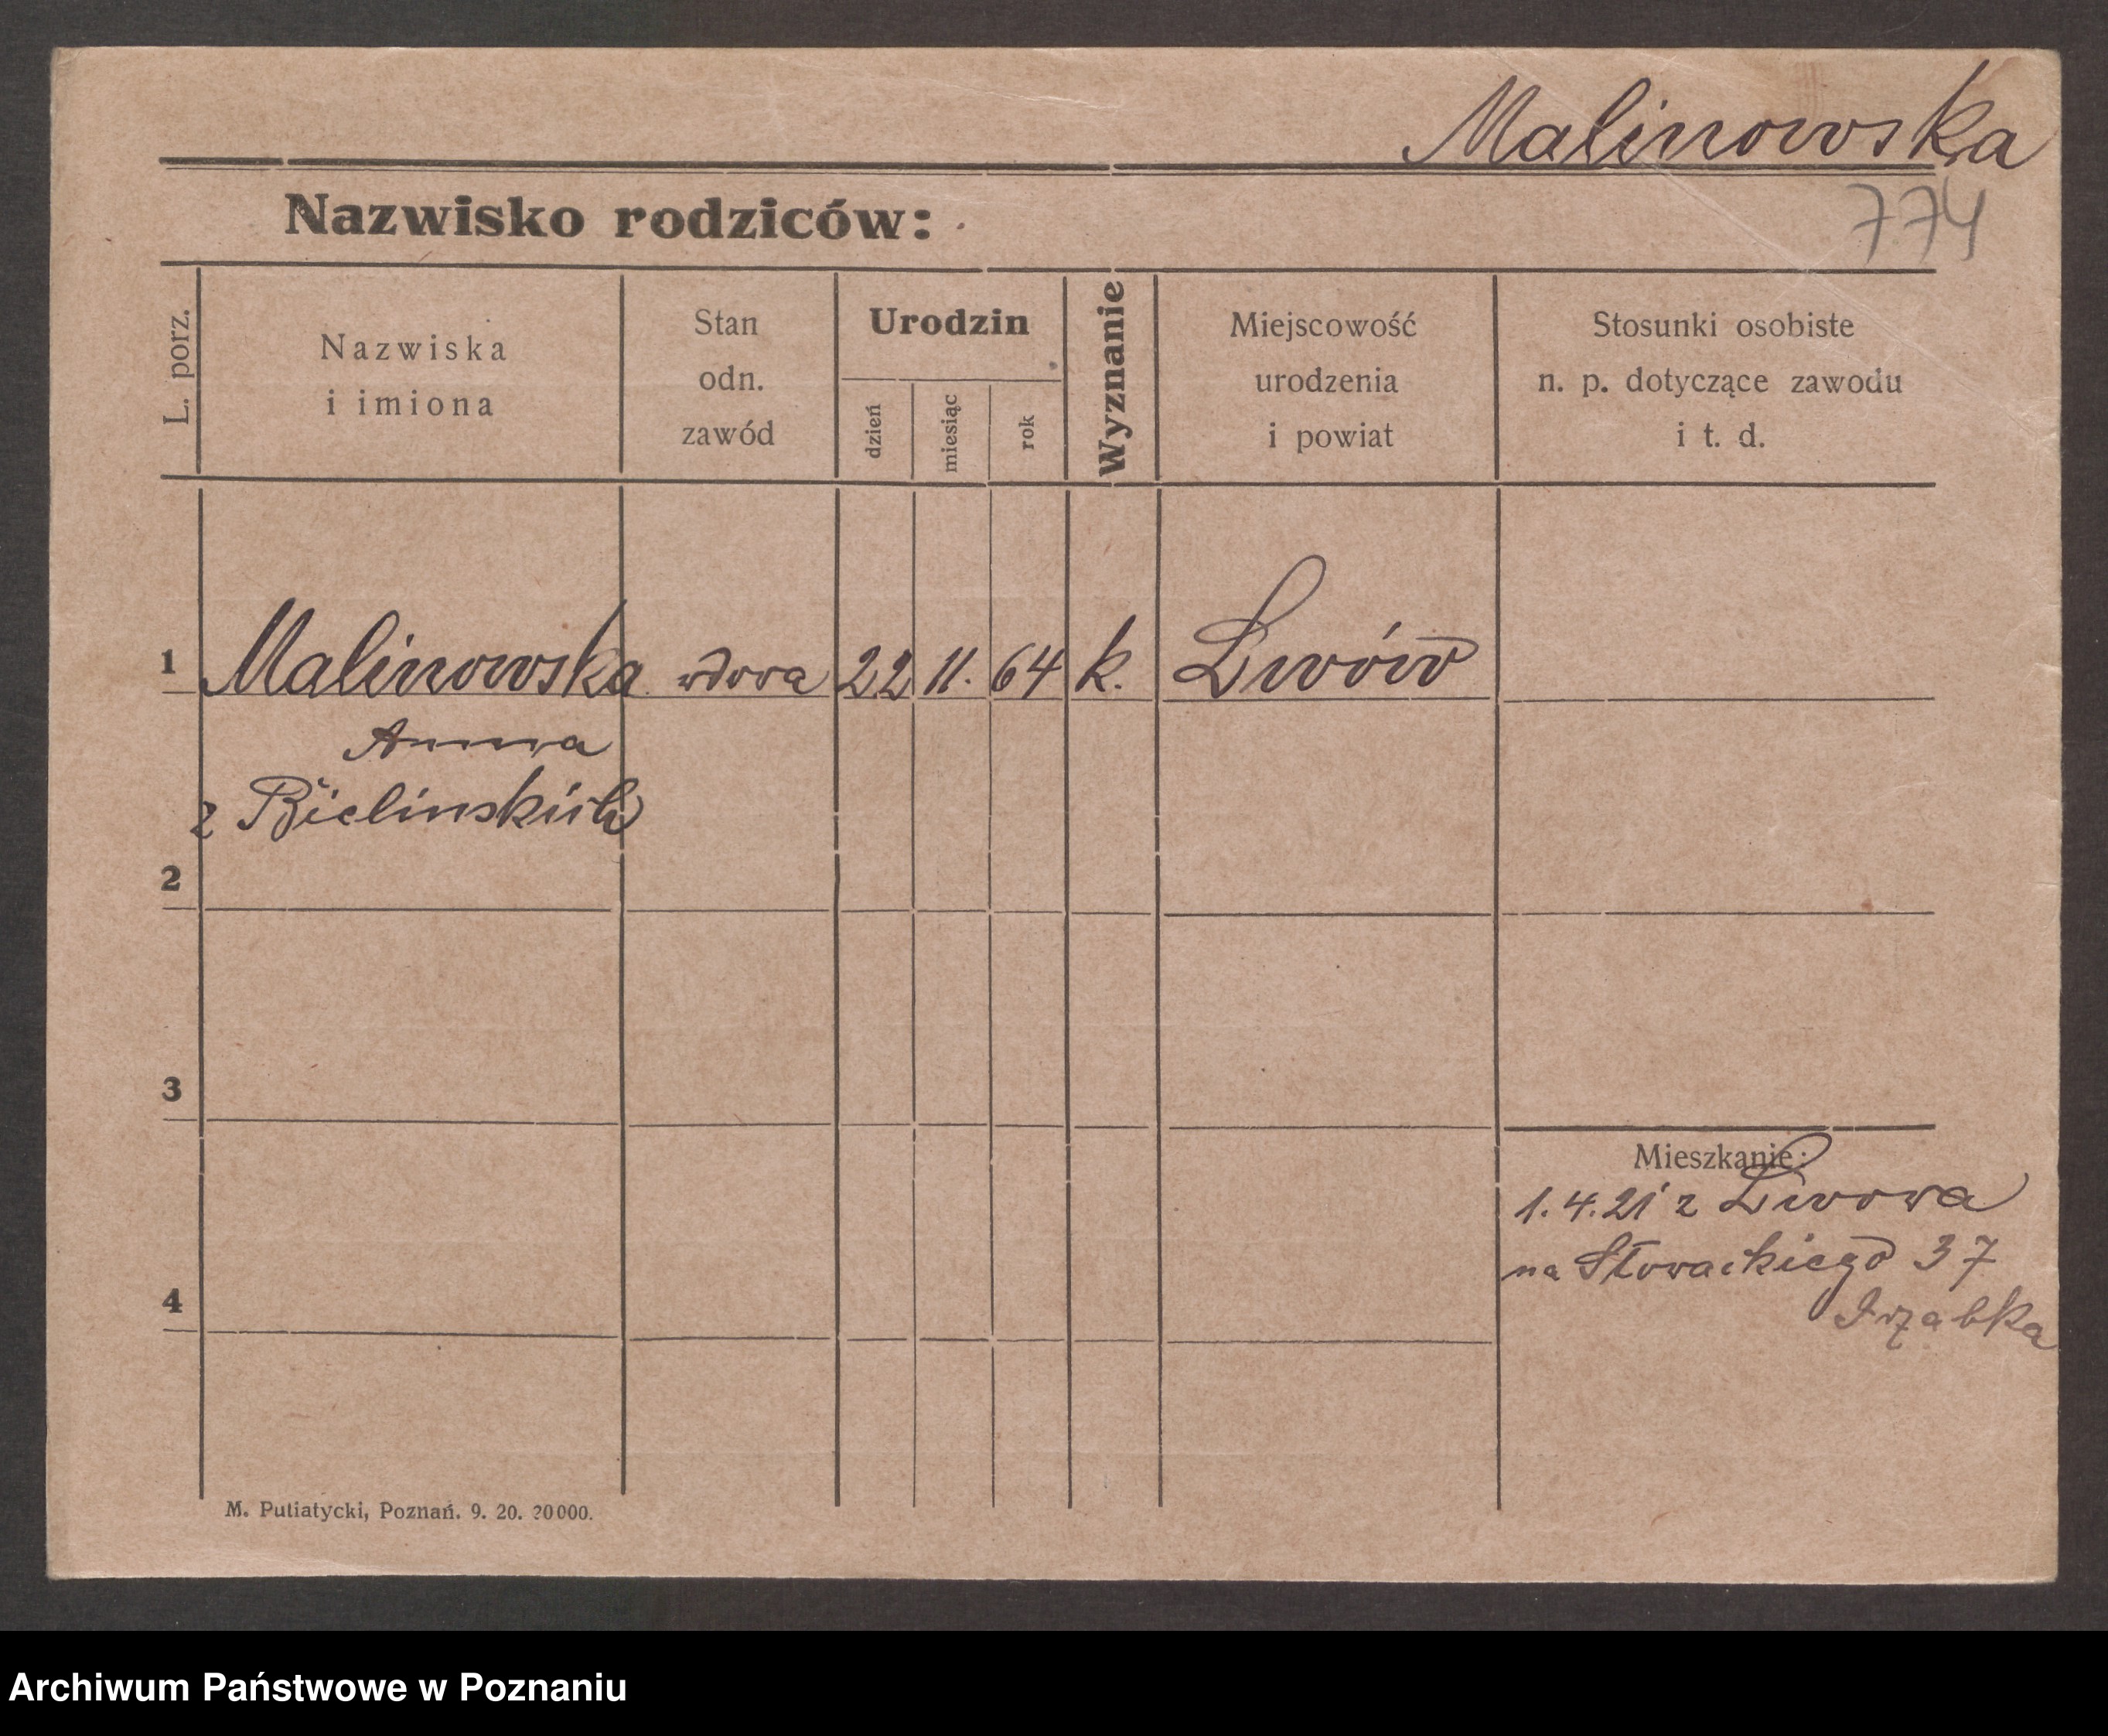 Malinowska
774
Nazwisko rodziców:
L. porz.
Nazwiska
i imiona
Stan
odn.
zawód
Urodzin
dzień
miesiąc
rok
Wyznanie
Miejscowość
urodzenia
i powiat
Stosunki osobiste
n. p. dotyczące zawodu
i t. d.
1 Malinowska wdowa 22 11. 64 k. Lwów
Anna
z Bielinskich
2
3
Mieszkanie:
1.4.21 z Lwowa
na Słowackiego 37
4
M. Putiatycki, Poznań. 9. 20. 20000.
Archiwum Państwowe w Poznaniu